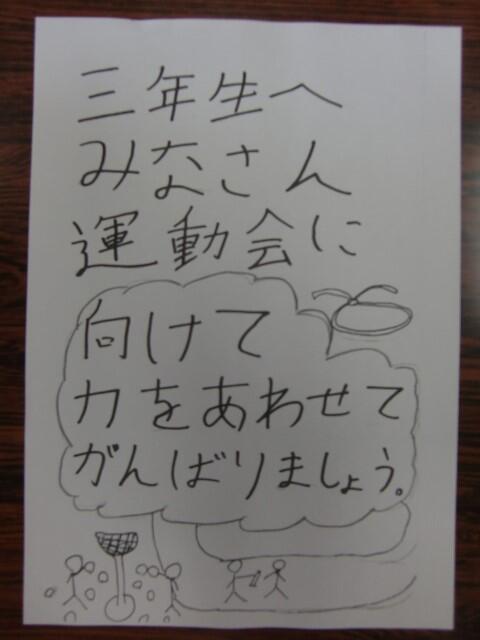 三年生へ
みなさん
運動会に
向けて
力をあわせて
がんばりましょう。